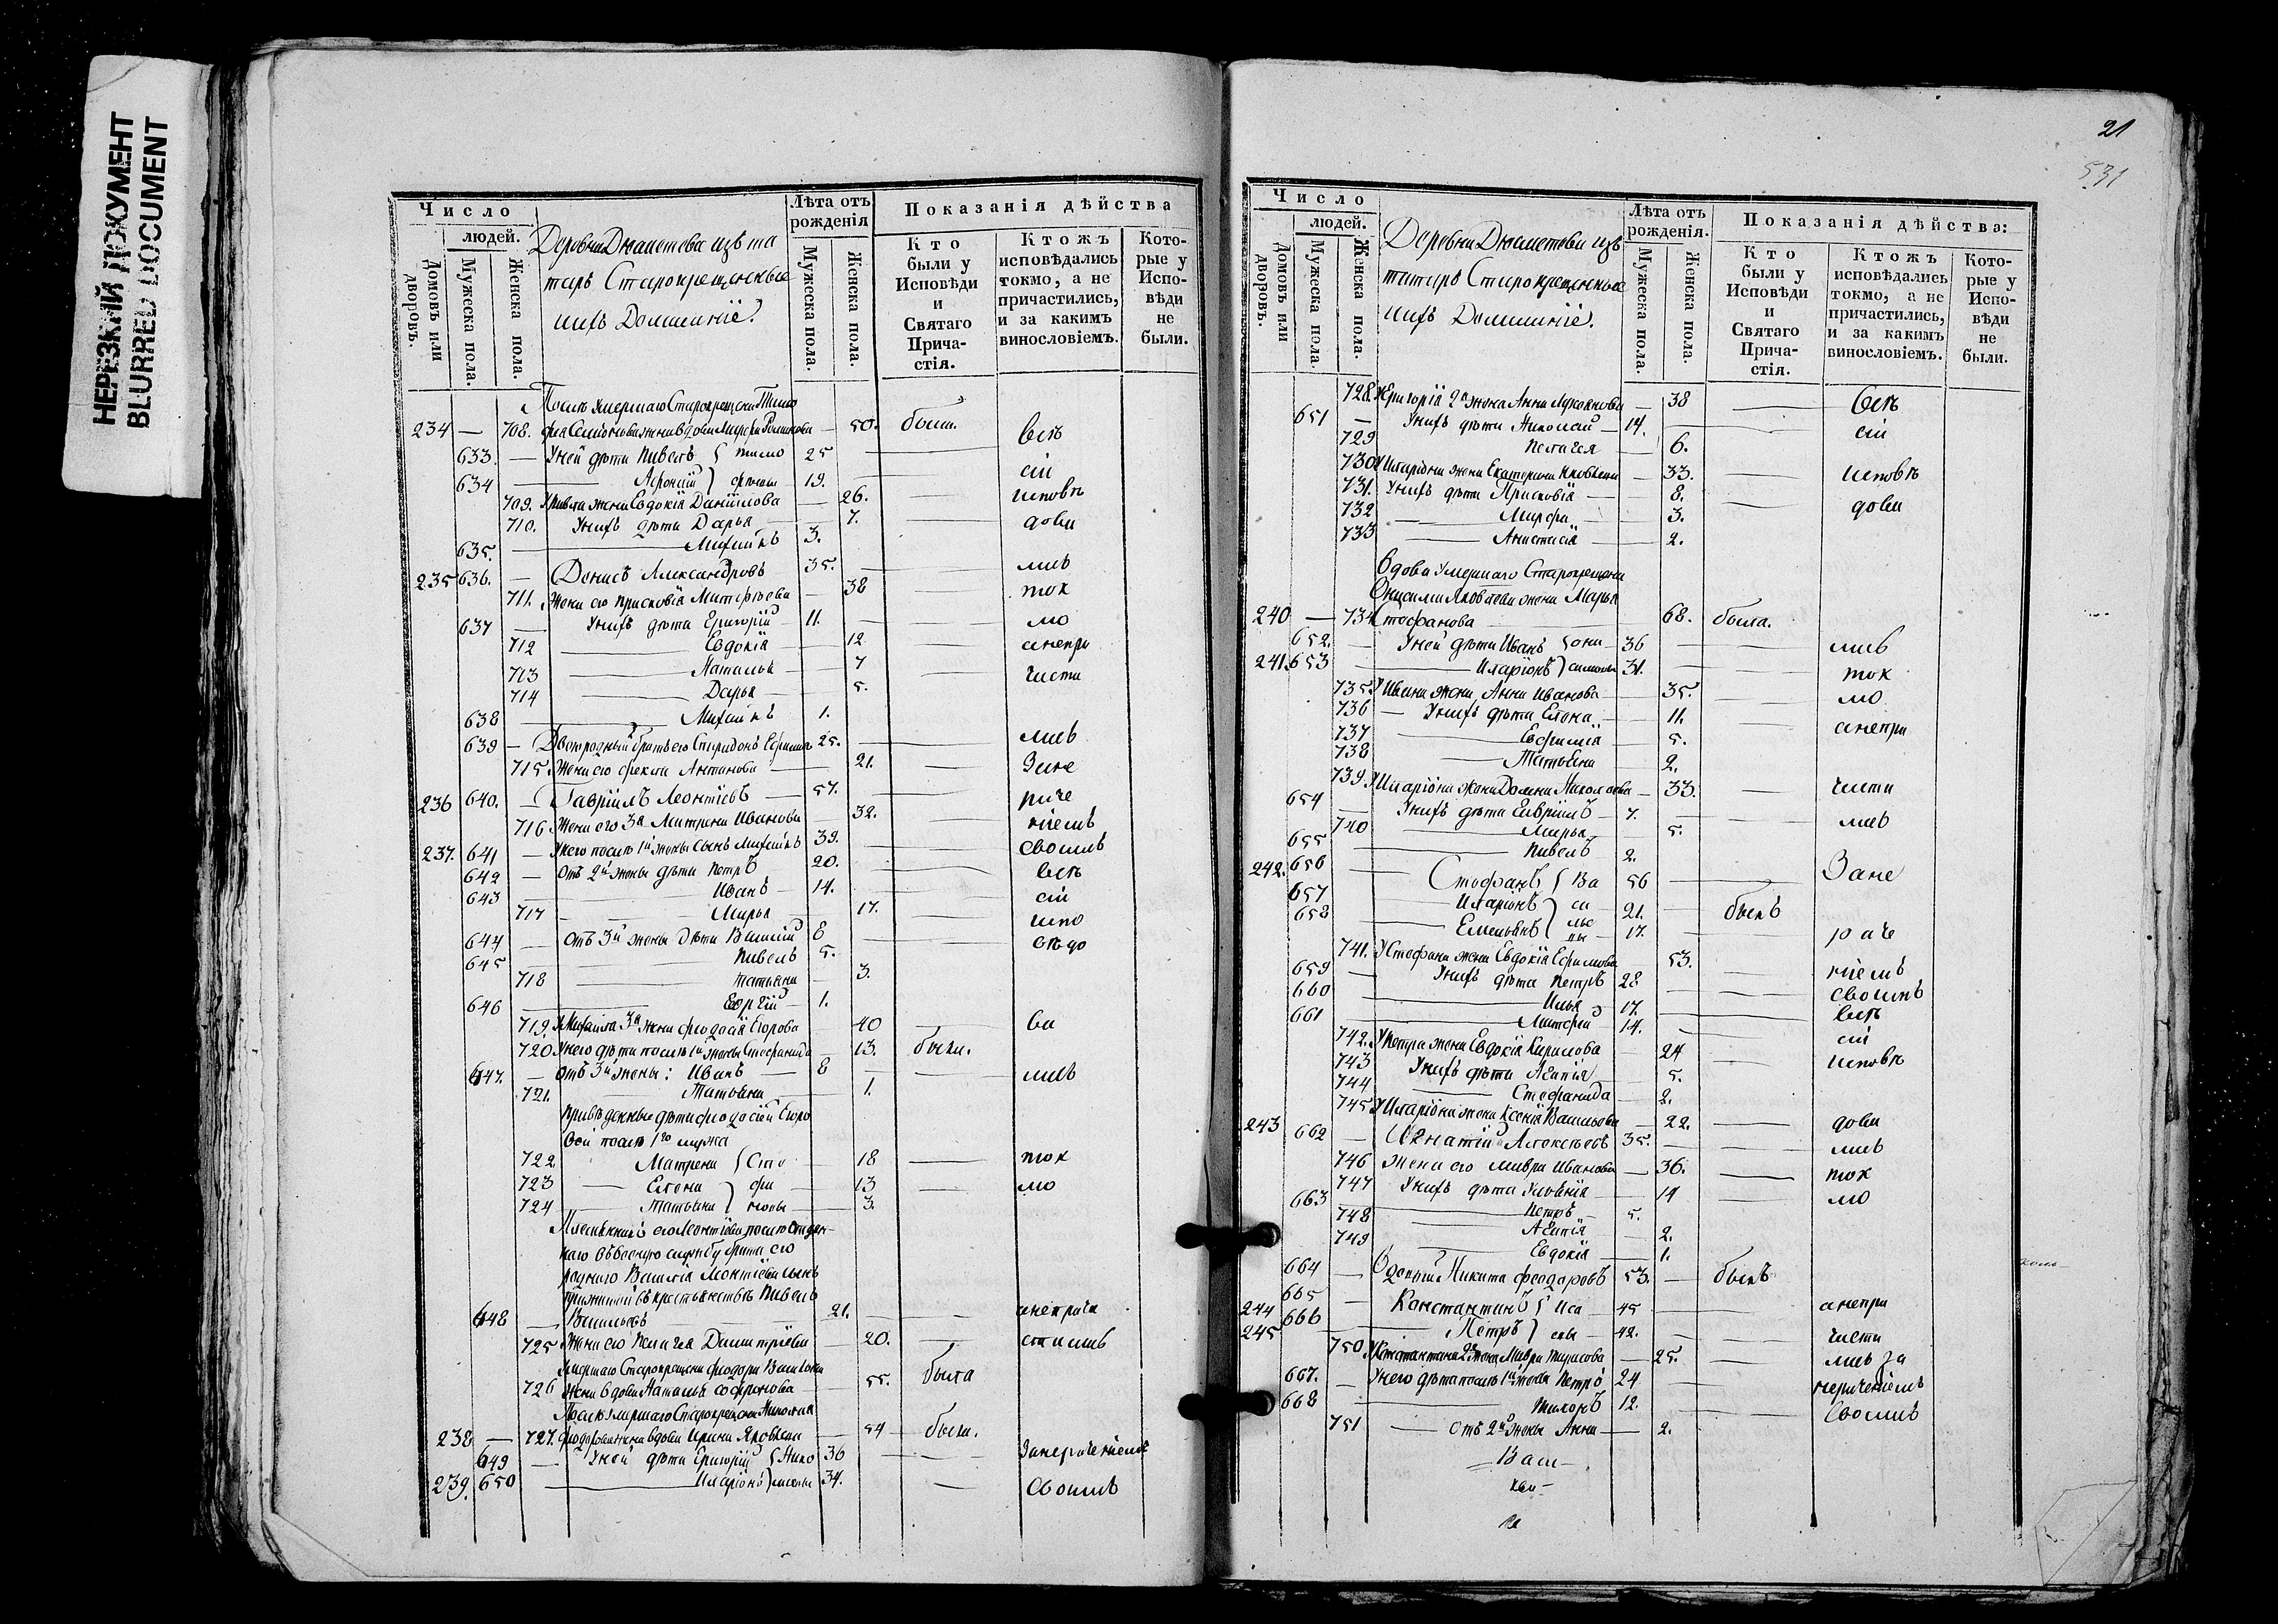 НЕРЕЗКИЙ ДОКУМЕНТ
BLURRED DOCUMENT
Число
людей.
Домовъ или дворовъ.
Мужеска пола.
Женска пола.
Деревни Дюметева изъ та
таръ Старокрещенные
ихъ Домашніе.
Лѣта отъ рожденія
Мужеска пола.
Женска пола.
Показанія дѣйства
Кто были у Исповѣди и Святаго Причастія.
Ктожъ исповѣдались токмо, а не причастились, и за какимъ винословіемъ.
Которые у Исповѣди не были.
Послѣ умершаго Старокрещена Тимо
234 — 708. фея Семіонова жена вдова Марфа Романова — 50. были.
633. — У ней дѣти Павелъ тимо 25 — всѣ
634 — Афонасій феевы 19. сіи
709. У Павла жена Евдокія Даніилова — 26. — исповѣ
710. У нихъ дѣти Дарья — 7. — дова
635. — Михаилъ 3.
235 636. — Денисъ Александровъ 35. — лис
711. Жена его Прасковія Митрофанова — 38 — ток
637 — У нихъ дѣти Григорій 11. — мо
712 — Евдокія — 12 — анепри
713 — Наталья — 7 — части
714 — Дарья — 5.
638 — Михаилъ 1.
639 — Двоюродный братъ его Спиридонъ Ефимовъ 25. — лись
715. Жена его Фекла Антонова — 21. — Зане
236 640. — Гавріилъ Леонтіевъ — 57. — раче
716 Жена его 3я Матрена Иванова — 32. — ніемъ
237. 641 — У него послѣ 1й жены сынъ Михаилъ 39. — своимъ
642 — Отъ 2й жены дѣти Петръ 20. — всѣ
643 — Иванъ — 14. — сіи
717 — Марья — 17. — испо
644 — Отъ 3й жены дѣти Василій 8 — вѣдо
645 — Павелъ 5.
718 — Татьяна — 3.
646 — Сергій — 1.
719. У Михаила 3я жена Феодосія Егорова — 40 — ва
720 У него дѣти послѣ 1й жены Стефанида — 13. были.
647. — Отъ 3й жены: Иванъ — 8 — лись
721. — Татьяна — 1.
Приведенные дѣти Феодосіи Егоро
вой послѣ 1го мужа
722 — Матрена Сте — 18 — ток
723 — Елена фа — 13 — мо
724 — Татьяна новы — 3.
Племянникъ его Леонтіева послѣ отдан
наго въ военную службу брата его
роднаго Василія Леонтіева сынъ
прижитой въ крестьянствѣ Павелъ
648 — Васильевъ — 21. — анепричa
725 Жена его Пелагея Дмитріева — 20. — стились
Умершаго Старокрещена Феодора Васильева
726 жена вдова Наталья Софронова — 55. была
Послѣ умершаго Старокрещена Николая
238 — 727. Феодорова жена вдова Ирина Яковлева — 54 — были.
649 — У ней дѣти Григорій Нико 36 — Занераченіемъ
239. 650 — Иларіонъ лаевы 34. — Своимъ
21
531
Число
людей.
Домовъ или дворовъ.
Мужеска пола.
Женска пола.
Деревни Дюметева изъ
татаръ Старокрещенные
ихъ Домашніе.
Лѣта отъ рожденія.
Мужеска пола.
Женска пола.
Показанія дѣйства:
Кто были у Исповѣди и Святаго Причастія.
Ктожъ исповѣдались токмо, а не причастились, и за какимъ винословіемъ.
Которые у Исповѣди не были.
728. У Григорія 2я жена Анна — 38 — всѣ
651 — У нихъ дѣти Николай — 14. — сіи
729 Пелагея — 6.
730 У Иларіона жена Екатерина Яковлева — 33. — исповѣ
731. У нихъ дѣти Прасковія — 8. — дова
732 — Марфа — 3.
733 — Анастасія — 2.
Вдова умершаго Старокрещена
Онисима Яковлева жена Марья
240 — 734 Стефанова — 68. была.
652. — У ней дѣти Иванъ они 36 — лись
241. 653 — Иларіонъ симовы 31. — ток
735. У Ивана жена Анна Иванова — 35. — мо
736 — У нихъ дѣти Елена — 11. — анепри
737 — Евфимія — 5.
738 — Татьяна — 2.
739. У Иларіона жена Домна Николаева — 33. — части
654 — У нихъ дѣти Гавріилъ — 7. — лись
740 — Марья — 5.
655 — Павелъ — 2.
242. 656 — Стефанъ Ва 56 — Зане
657 — Иларіонъ си — 21. — былъ
658 — Емельянъ лье вы — 17. — раче
741. У Стефана жена Евдокія Ефимова — 53. — ніемъ
659 — У нихъ дѣти Петръ 28 — своимъ
660 — Илья — 17. — всѣ
661 — Матфей — 14. — сіи
742. У Петра жена Евдокія Кирилова — 24 — исповѣ
743 У нихъ дѣти Агапія — 5.
744 — Стефанида — 2.
745 У Иларіона жена Ксенія Васильева — 22. — дова
243 662 — Игнатій Алексѣевъ 35. — лись
746 Жена его Мавра Иванова — 36. — ток
747 У нихъ дѣти Уліанія — 14 — мо
663 — Петръ — 5.
748 — Агапія — 2.
749 — Евдокія — 1.
664 — Вдовый Никита Феодоровъ 53. — былъ
665 — Константинъ Иса — 45 — анепри
244 666 — Петръ евы — 42. — части
245
750. У Константина 2я жена Мавра Тарасова — 25. — лись за
667. — У него дѣти послѣ 1й жены Петръ 24 — нераченіемъ
668 — Тихонъ 12. — Своимъ
751 — отъ 2й жены Анна — 2.
Васи